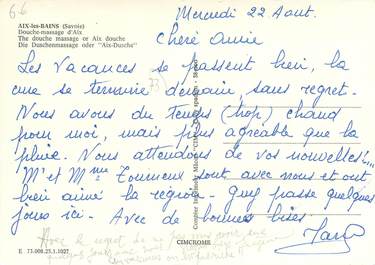 66
AIX-les-BAINS (Savoie)
Douche-massage d'Aix
The douche massage or Aix douche
Die Duschenmassage oder "Aix-Dusche"
Mercredi 22 Aout.
Chère Amie
Les Vacances se passent bien, la
cure se termine demain, sans regret.
Nous avons du Temps (trop) chaud
pour moi, mais plus agréable que la
pluie. Nous attendons de vos nouvelles!...
Mr et Mme sont avec nous et ont
bien aimé la région. Guy passe quelques
jours ici. Avec de bonnes bises
Avec le regret de ne pas
quelques jours
E 73.008.25.1.1027
CIMCROME